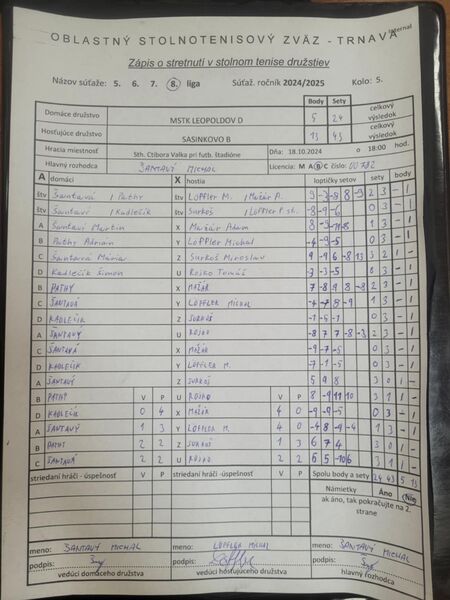 Internal
OBLASTNÝ STOLNOTENISOVÝ ZVÄZ - TRNAVA
Zápis o stretnutí v stolnom tenise družstiev
Názov súťaže: 5. 6. 7. 8. liga Súťaž. ročník 2024/2025 Kolo: 5.
Body Sety
Domáce družstvo MSTK LEOPOLDOV D 5 24 celkový výsledok
Hosťujúce družstvo SASINKOVO B 13 43 celkový výsledok
Hracia miestnosť Sth. Ctibora Valka pri futb. štadióne Dňa: 18.10.2024 o 18:00 hod.
Hlavný rozhodca ŠANTAVÝ MICHAL Licencia: M A B C číslo:
A domáci X hostia loptičky setov sety body
štv Šantavá / Pathy štv Löffler M. / Možár A. 2 3 - 1
štv Šantavý / Kadlečík štv Surkoš / Löffler P. st. -8 -9 -6 0 3 - 1
A Šantavý Martin X Možár Adam 1 3 - 1
B Pathy Adrian Y Löffler Michal -4 -9 -5 0 3 - 1
C Šantavá Mária Z Surkoš Miroslav 3 2 1 -
D Kadlečík Šimon U Rojko Tomáš -3 -3 -5 0 3 - 1
B PATHY X MOŽÁR 1 -
C ŠANTAVÁ Y LÖFFLER MICHAL 1 3 - 1
D KADLEČÍK Z SURKOŠ -1 -5 -1 0 3 - 1
A ŠANTAVÝ U ROJKO -8 7 7 -8 -3 2 3 - 1
C ŠANTAVÁ X MOŽÁR -9 -7 -5 0 3 - 1
D KADLEČÍK Y LÖFFLER M. -7 -1 -5 0 3 - 1
A ŠANTAVÝ Z SURKOŠ 5 9 8 3 0 1 -
B PATHY V P U ROJKO V P 8 -9 11 10 3 1 1 -
D KADLEČÍK 0 4 X MOŽÁR 4 0 -9 -9 -5 0 3 - 1
A ŠANTAVÝ 1 3 Y LÖFFLER M. 4 0 -4 8 -9 -4 1 3 - 1
B PATHY 2 2 Z SURKOŠ 1 3 6 7 4 3 0 1 -
C ŠANTAVÁ 2 2 U ROJKO 2 2 6 5 -10 6 3 1 1 -
striedaní hráči - úspešnosť V P striedaní hráči - úspešnosť V P Spolu body a sety 24 43 5 13
Námietky Áno Nie
ak áno, tak pokračujte na 2. strane
meno: ŠANTAVÝ MICHAL LÖFFLER MICHAL meno: ŠANTAVÝ MICHAL
podpis: podpis: podpis:
vedúci domáceho družstva vedúci hosťujúceho družstva hlavný rozhodca